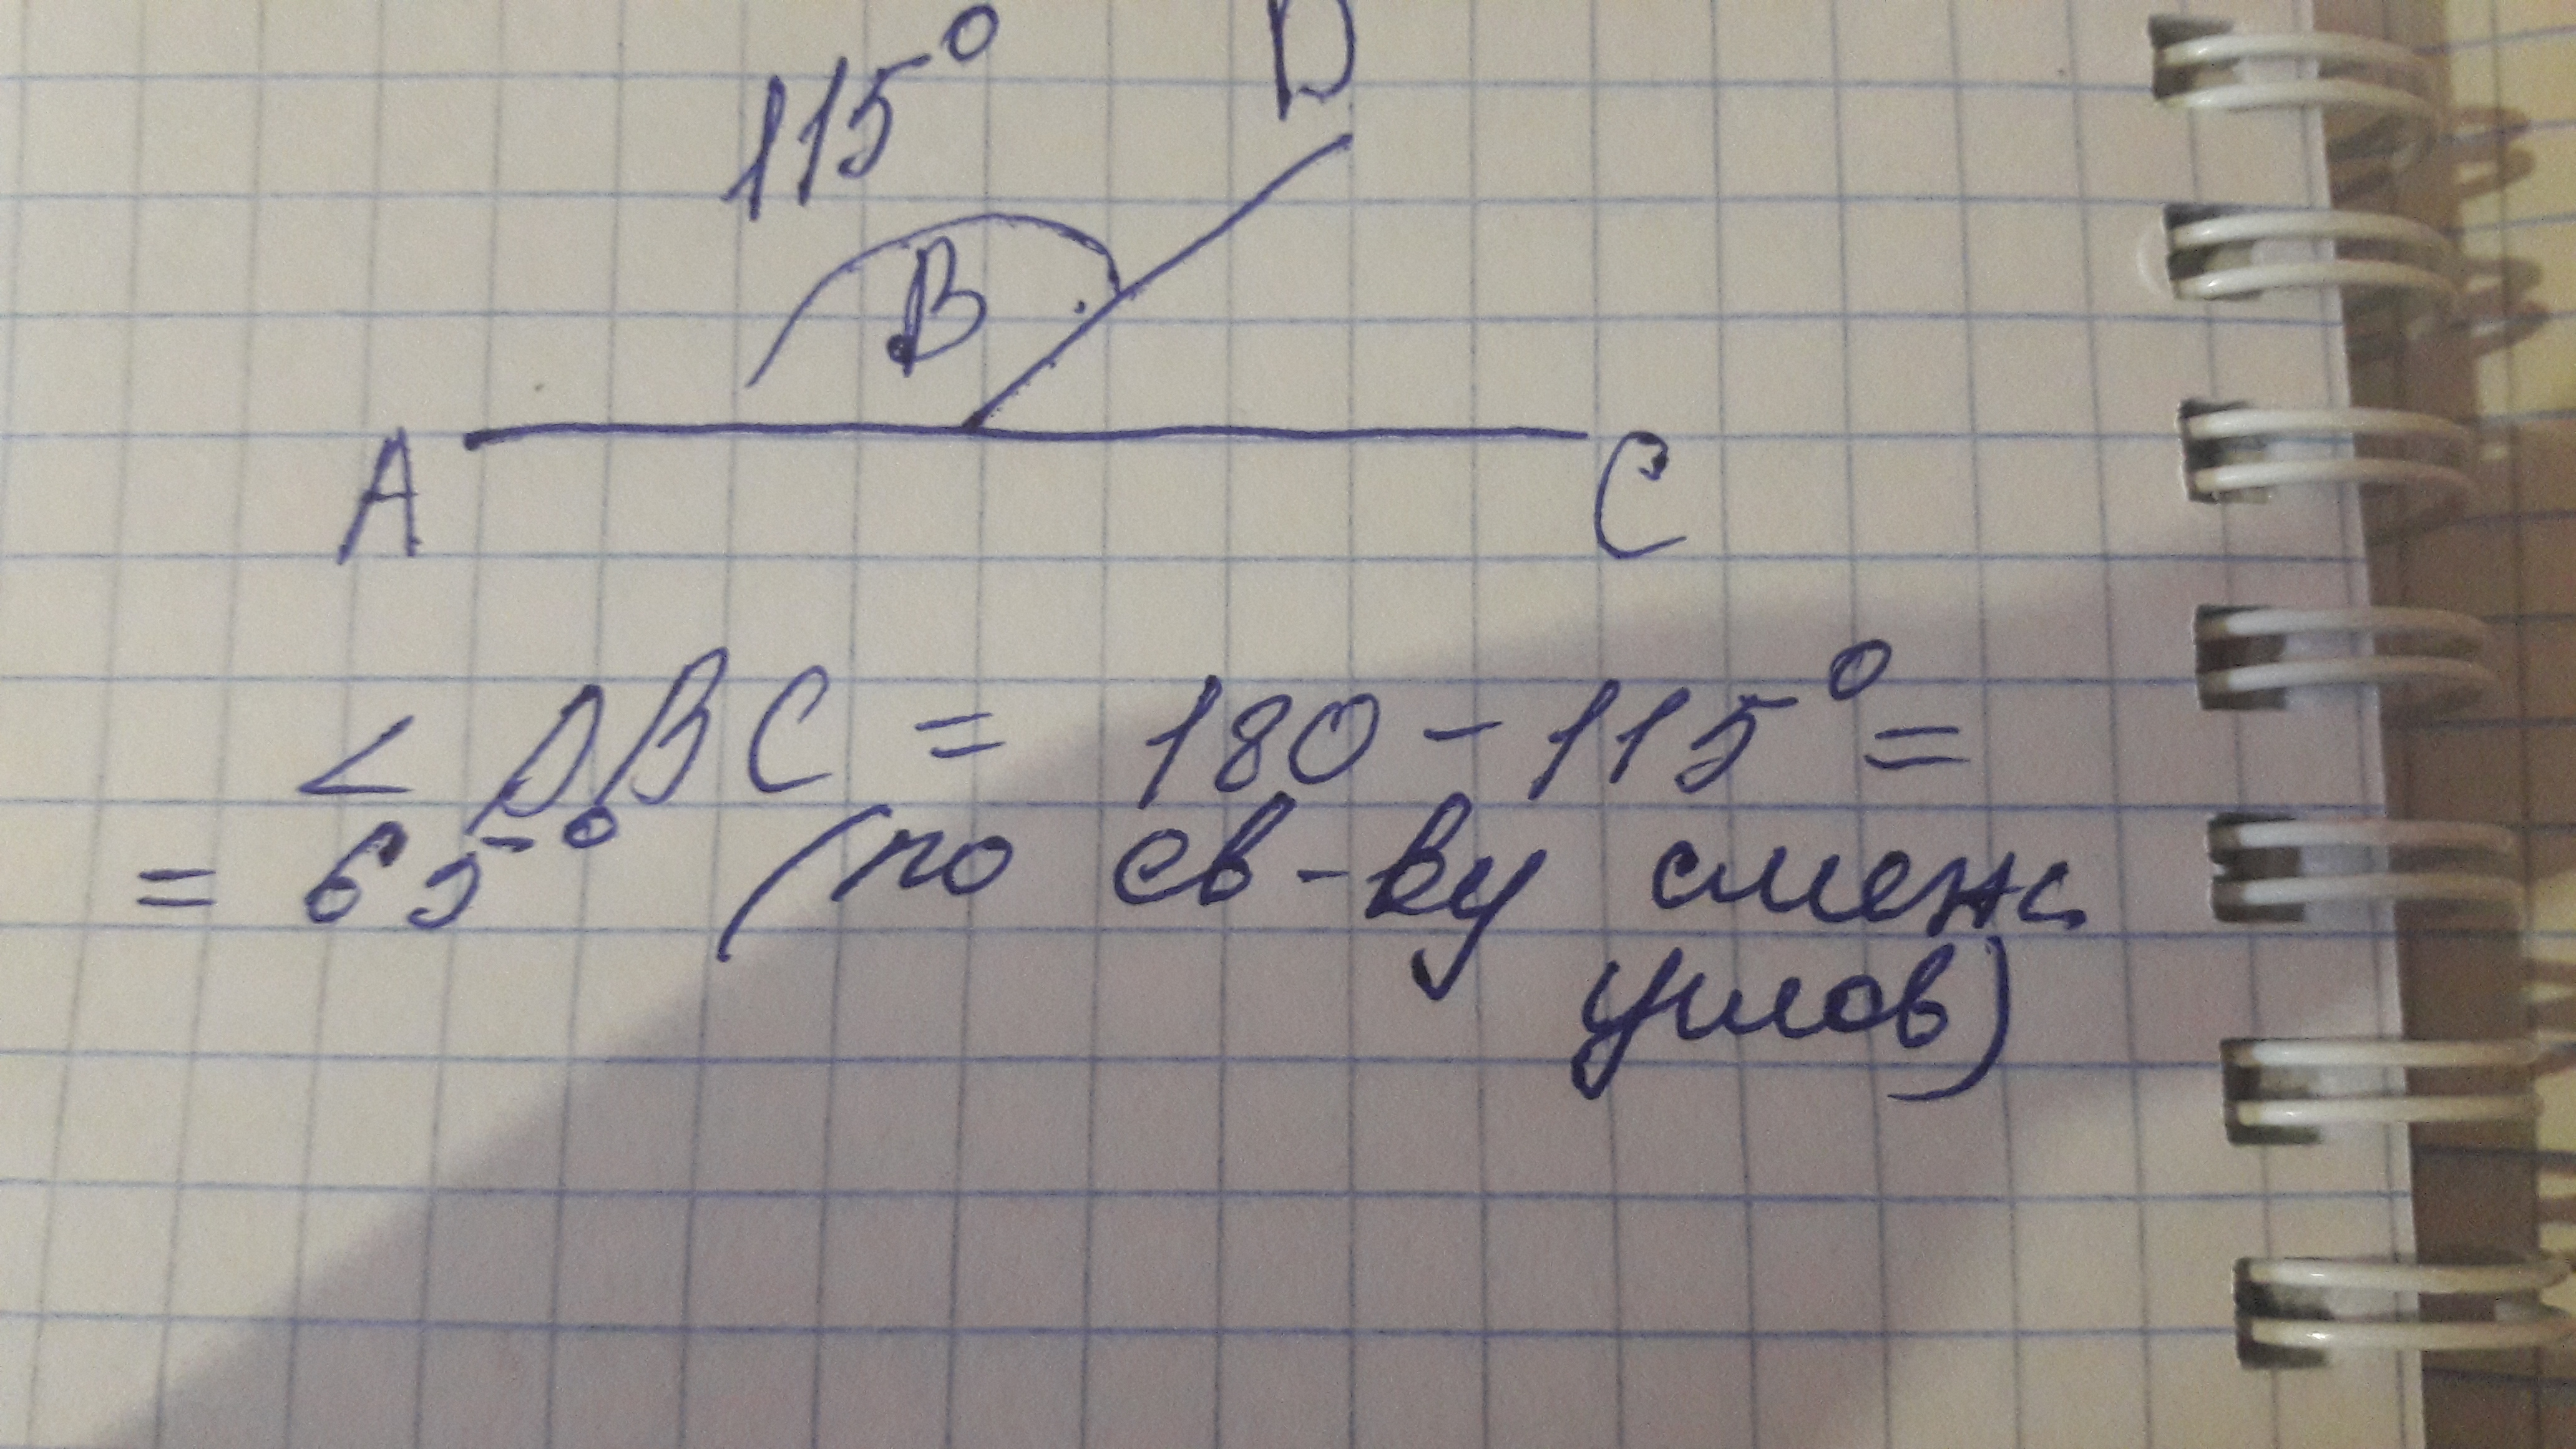 115°
D
B
A
C
< DBC = 180 - 115° =
= 65° (по св-ву смежн.
углов)